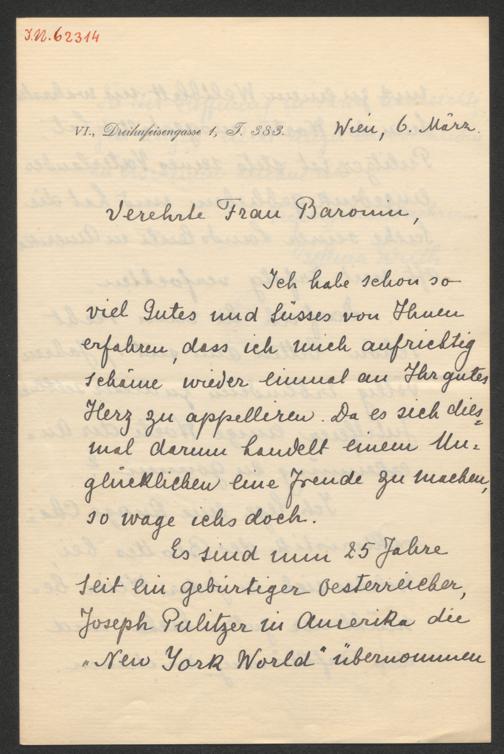 J.N. 62314
VI., Dreihufeisengasse 1, T. 383. Wien, 6. März.
Verehrte Frau Baronin,
Ich habe schon so
viel Gutes und Süsses von Ihnen
erfahren, dass ich mich aufrichtig
schäme wieder einmal an Ihr gutes
Herz zu appelleren. Da es sich dies=
mal darum handelt einem Un=
glücklichen eine Freude zu machen,
so wage ichs doch.
Es sind nun 25 Jahre
seit ein gebürtiger Oesterreicher,
Joseph Pulitzer in Amerika die
"New York World" übernommen